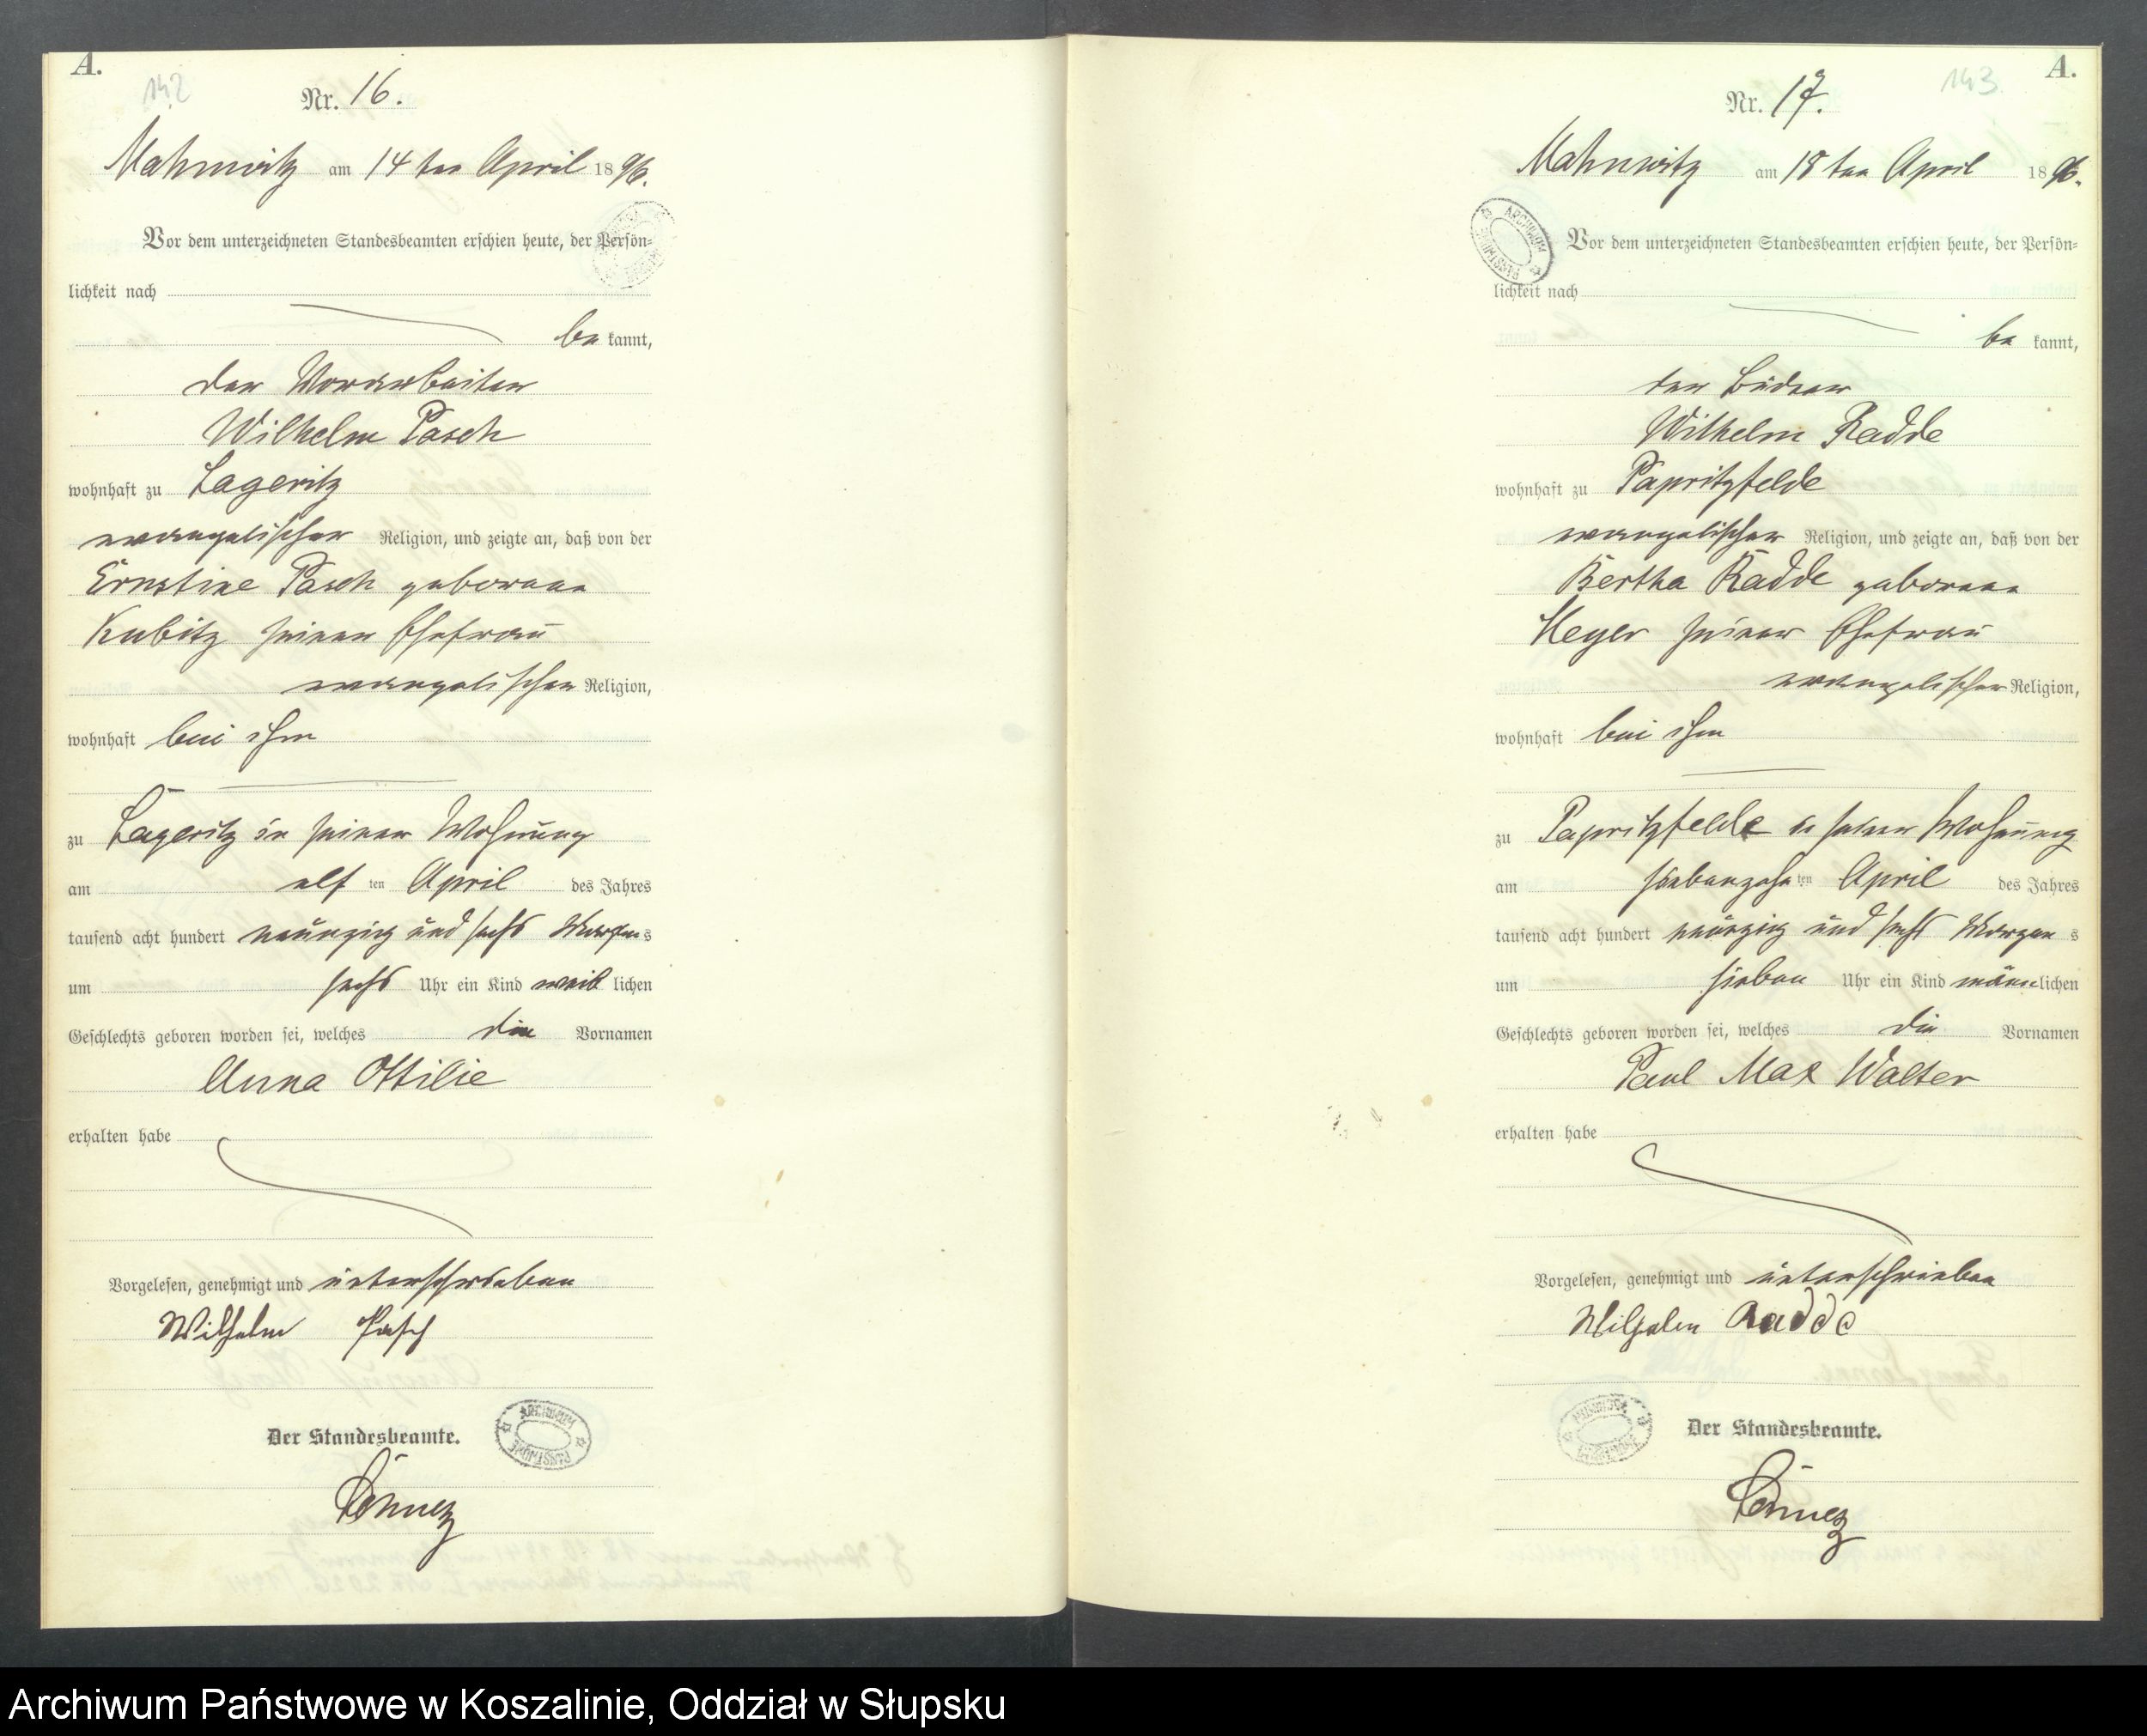 A.
142
Nr. 16.
Mahnwitz am 14ten April 1896.
Vor dem unterzeichneten Standesbeamten erschien heute, der Persön-
lichkeit nach
be kannt,
der Vorarbeiter
Wilhelm Pasch
wohnhaft zu Lageritz
evangelischer Religion, und zeigte an, daß von der
Ernstine Pasch geborene
Kubitz seiner Ehefrau
evangelischer Religion,
wohnhaft bei ihm
zu Lageritz in seiner Wohnung
am elf ten April des Jahres
tausend acht hundert neunzig und sechs Morgens
um sechs Uhr ein Kind weib lichen
Geschlechts geboren worden sei, welches die Vornamen
Anna Ottilie
erhalten habe
Vorgelesen, genehmigt und unterschrieben
Wilhelm Pasch
Der Standesbeamte.
ARCHIWUM PAŃSTWOWE
A.
143
Nr. 17.
Mahnwitz am 18ten April 1896.
Vor dem unterzeichneten Standesbeamten erschien heute, der Persön-
lichkeit nach
be kannt,
der Büdner
Wilhelm Radde
wohnhaft zu Papritzfelde
evangelischer Religion, und zeigte an, daß von der
Bertha Radde geborene
Heyer seiner Ehefrau
evangelischer Religion,
wohnhaft bei ihm
zu Papritzfelde in seiner Wohnung
am siebenzehn ten April des Jahres
tausend acht hundert neunzig und sechs Morgen s
um sieben Uhr ein Kind männlichen
Geschlechts geboren worden sei, welches die Vornamen
Paul Max Walter
erhalten habe
Vorgelesen, genehmigt und unterschrieben
Wilhelm Radde
Der Standesbeamte.
Archiwum Państwowe w Koszalinie, Oddział w Słupsku